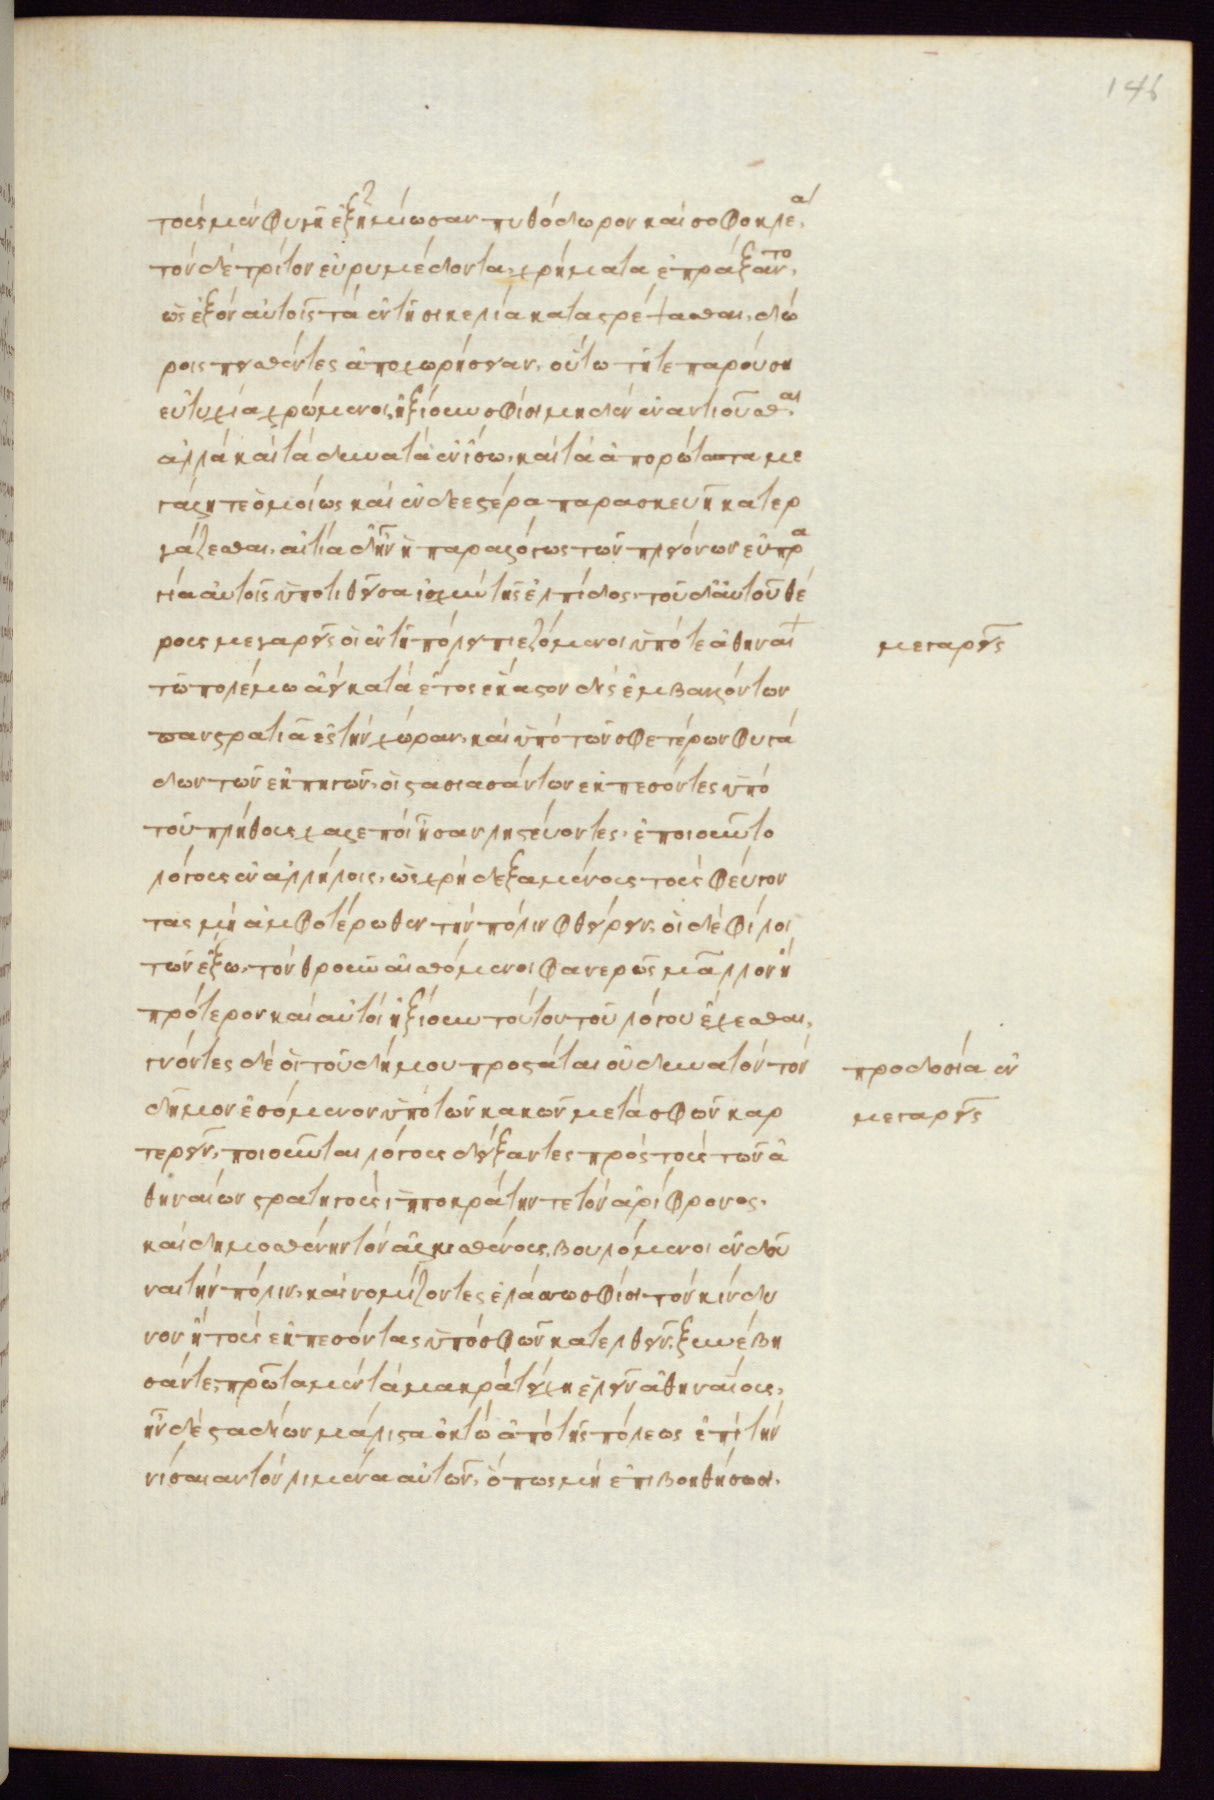 146
τοὺς μὲν φυγῇ ἐζημίωσαν πυθόδωρον καὶ σοφοκλέα,
τὸν δὲ τρίτον εὐρυμέδοντα, χρήματα ἐπράξαντο,
ὡς ἐξὸν αὐτοῖς τὰ ἐν τῇ σικελία καταστρέψασθαι, δώ
ροις πεισθέντες ἀποχωρήσειαν, οὕτω τῇ τε παρούση
εὐτυχία χρώμενοι, ἠξίουν σφίσι μηδὲν ἐναντιοῦσθαι,
ἀλλὰ καὶ τὰ δυνατὰ ἐν ἴσω, καὶ τὰ ἀπορώτατα με
γάλη τε ὁμοίως καὶ ἐνδεεστέρα παρασκευῇ κατερ
γάζεσθαι, αἰτία δ' ἦν ἡ παραλόγως τῶν πλειόνων εὐπρα
γία αὐτοῖς ὑποτιθεῖσα ἰσχὺν τῆς ἐλπίδος, τοῦ δ' αὐτοῦ θέ
ρους μεγαρεῖς οἱ ἐν τῇ πόλει πιεζόμενοι ὑπό τε ἀθηναί
τῶ πολέμω ἀεὶ κατὰ ἔτος ἕκαστον δὶς ἐμβαλλόντων
πανστρατιᾶ ἐς τὴν χώραν, καὶ ὑπὸ τῶν σφετέρων φυγά
δων τῶν ἐκ πηγῶν, οἳ στασιασάντων ἐκπεσόντες ὑπὸ
τοῦ πλήθους χαλεποὶ ἦσαν ληστεύοντες, ἐποιοῦντο
λόγους ἐν ἀλλήλοις, ὡς χρὴ δεξαμένους τοὺς φεύγον
τας μὴ ἀμφοτέρωθεν τὴν πόλιν φθείρειν, οἱ δὲ φίλοι
τῶν ἔξω, τὸν θροῦν αἰσθόμενοι φανερῶς μᾶλλον ἢ
πρότερον καὶ αὐτοὶ ἠξίουν τούτου τοῦ λόγου ἔχεσθαι,
γνόντες δὲ οἱ τοῦ δήμου προστάται οὐ δυνατὸν τὸν
δῆμον ἐσόμενον ὑπὸ τῶν κακῶν μετὰ σφῶν καρ
τερεῖν, ποιοῦνται λόγους δείξαντες πρὸς τοὺς τῶν ἀ
θηναίων στρατηγοὺς, ἱπποκράτην τε τὸν ἀρίφρονος,
καὶ δημοσθένην τὸν ἀλκισθένους, βουλόμενοι ἐνδοῦ
ναι τὴν πόλιν, καὶ νομίζοντες ἐλάσσω σφίσι τὸν κίνδυ
νον ἢ τοὺς ἐκπεσόντας ὑπὸ σφῶν κατελθεῖν, ξυνέβη
σάν τε, πρῶτα μὲν τὰ μακρὰ τείχη ἑλεῖν ἀθηναίους,
ἦν δὲ σταδίων μάλιστα ὀκτὼ ἀπὸ τῆς πόλεως ἐπὶ τὴν
νίσαιαν τὸν λιμένα αὐτῶν, ὅπως μὴ ἐπιβοηθήσωσι,
μεγαρεῖς
προδοσία ἐν
μεγαρεῖς